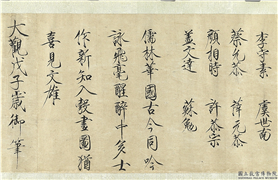 李守素 虞世南
蔡允恭 薛元恭
顏相時 許恭宗
蓋文達 蘇勗
儒林華國古今同吟
詠飛毫醒醉中多士
作新知入彀畫圖猶
喜見文雄
大觀戊子歲御筆